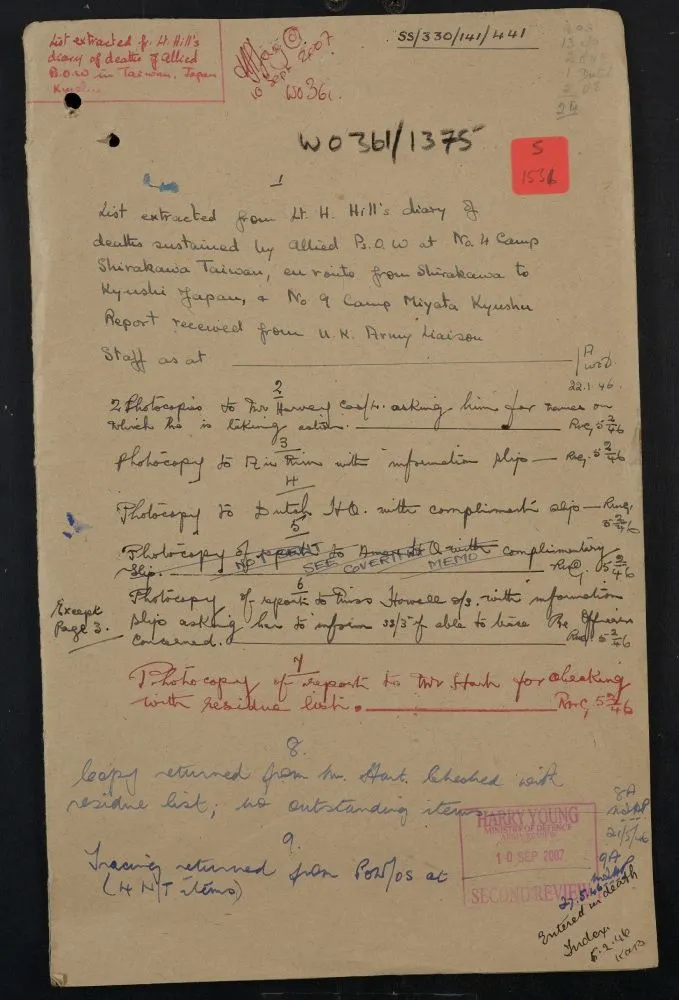 List extracted fr. Lt. Hill's
diary of deaths of Allied
P.O.W in Taiwan, Japan
SS/330/141/441
10 Sept 2007
WO361
WO361/1375
S
1536
1
List extracted from Lt. H. Hill's diary of
deaths sustained by Allied P.O.W at No. 4 Camp
Shirakawa Taiwan, en route from Shirakawa to
Kyushi Japan, & No 9 Camp Miyata Kyushu
Report received from U.K. Army Liaison
Staff as at
1A
22.1.46.
2
2 Photocopies to Mr Harvey Cas/4. asking him for names on
which he is taking action.
3
Photocopy to with information slip
4
Photocopy to Dutch H.Q. with compliment slip
5
Photocopy of report to Q with complimentary
slip.
NOT SENT SEE COVERING MEMO
6
Except
Page 3.
Photocopy of report to Miss Howell with information
slip asking her to inform SS/3 if able to trace the Officers
concerned.
7
Photocopy of report to Mr. Hart for checking
with residue list.
8.
Copy returned from Mr. Hart. Checked with
residue list; no outstanding items
8A
21/5/46
9.
Tracing returned from POW/OS at
(4 N/T items)
9A
27.5.46
HARRY YOUNG
MINISTRY OF DEFENCE
10 SEP 2007
SECOND REVIEW
Entered in death
Index.
5.2.46